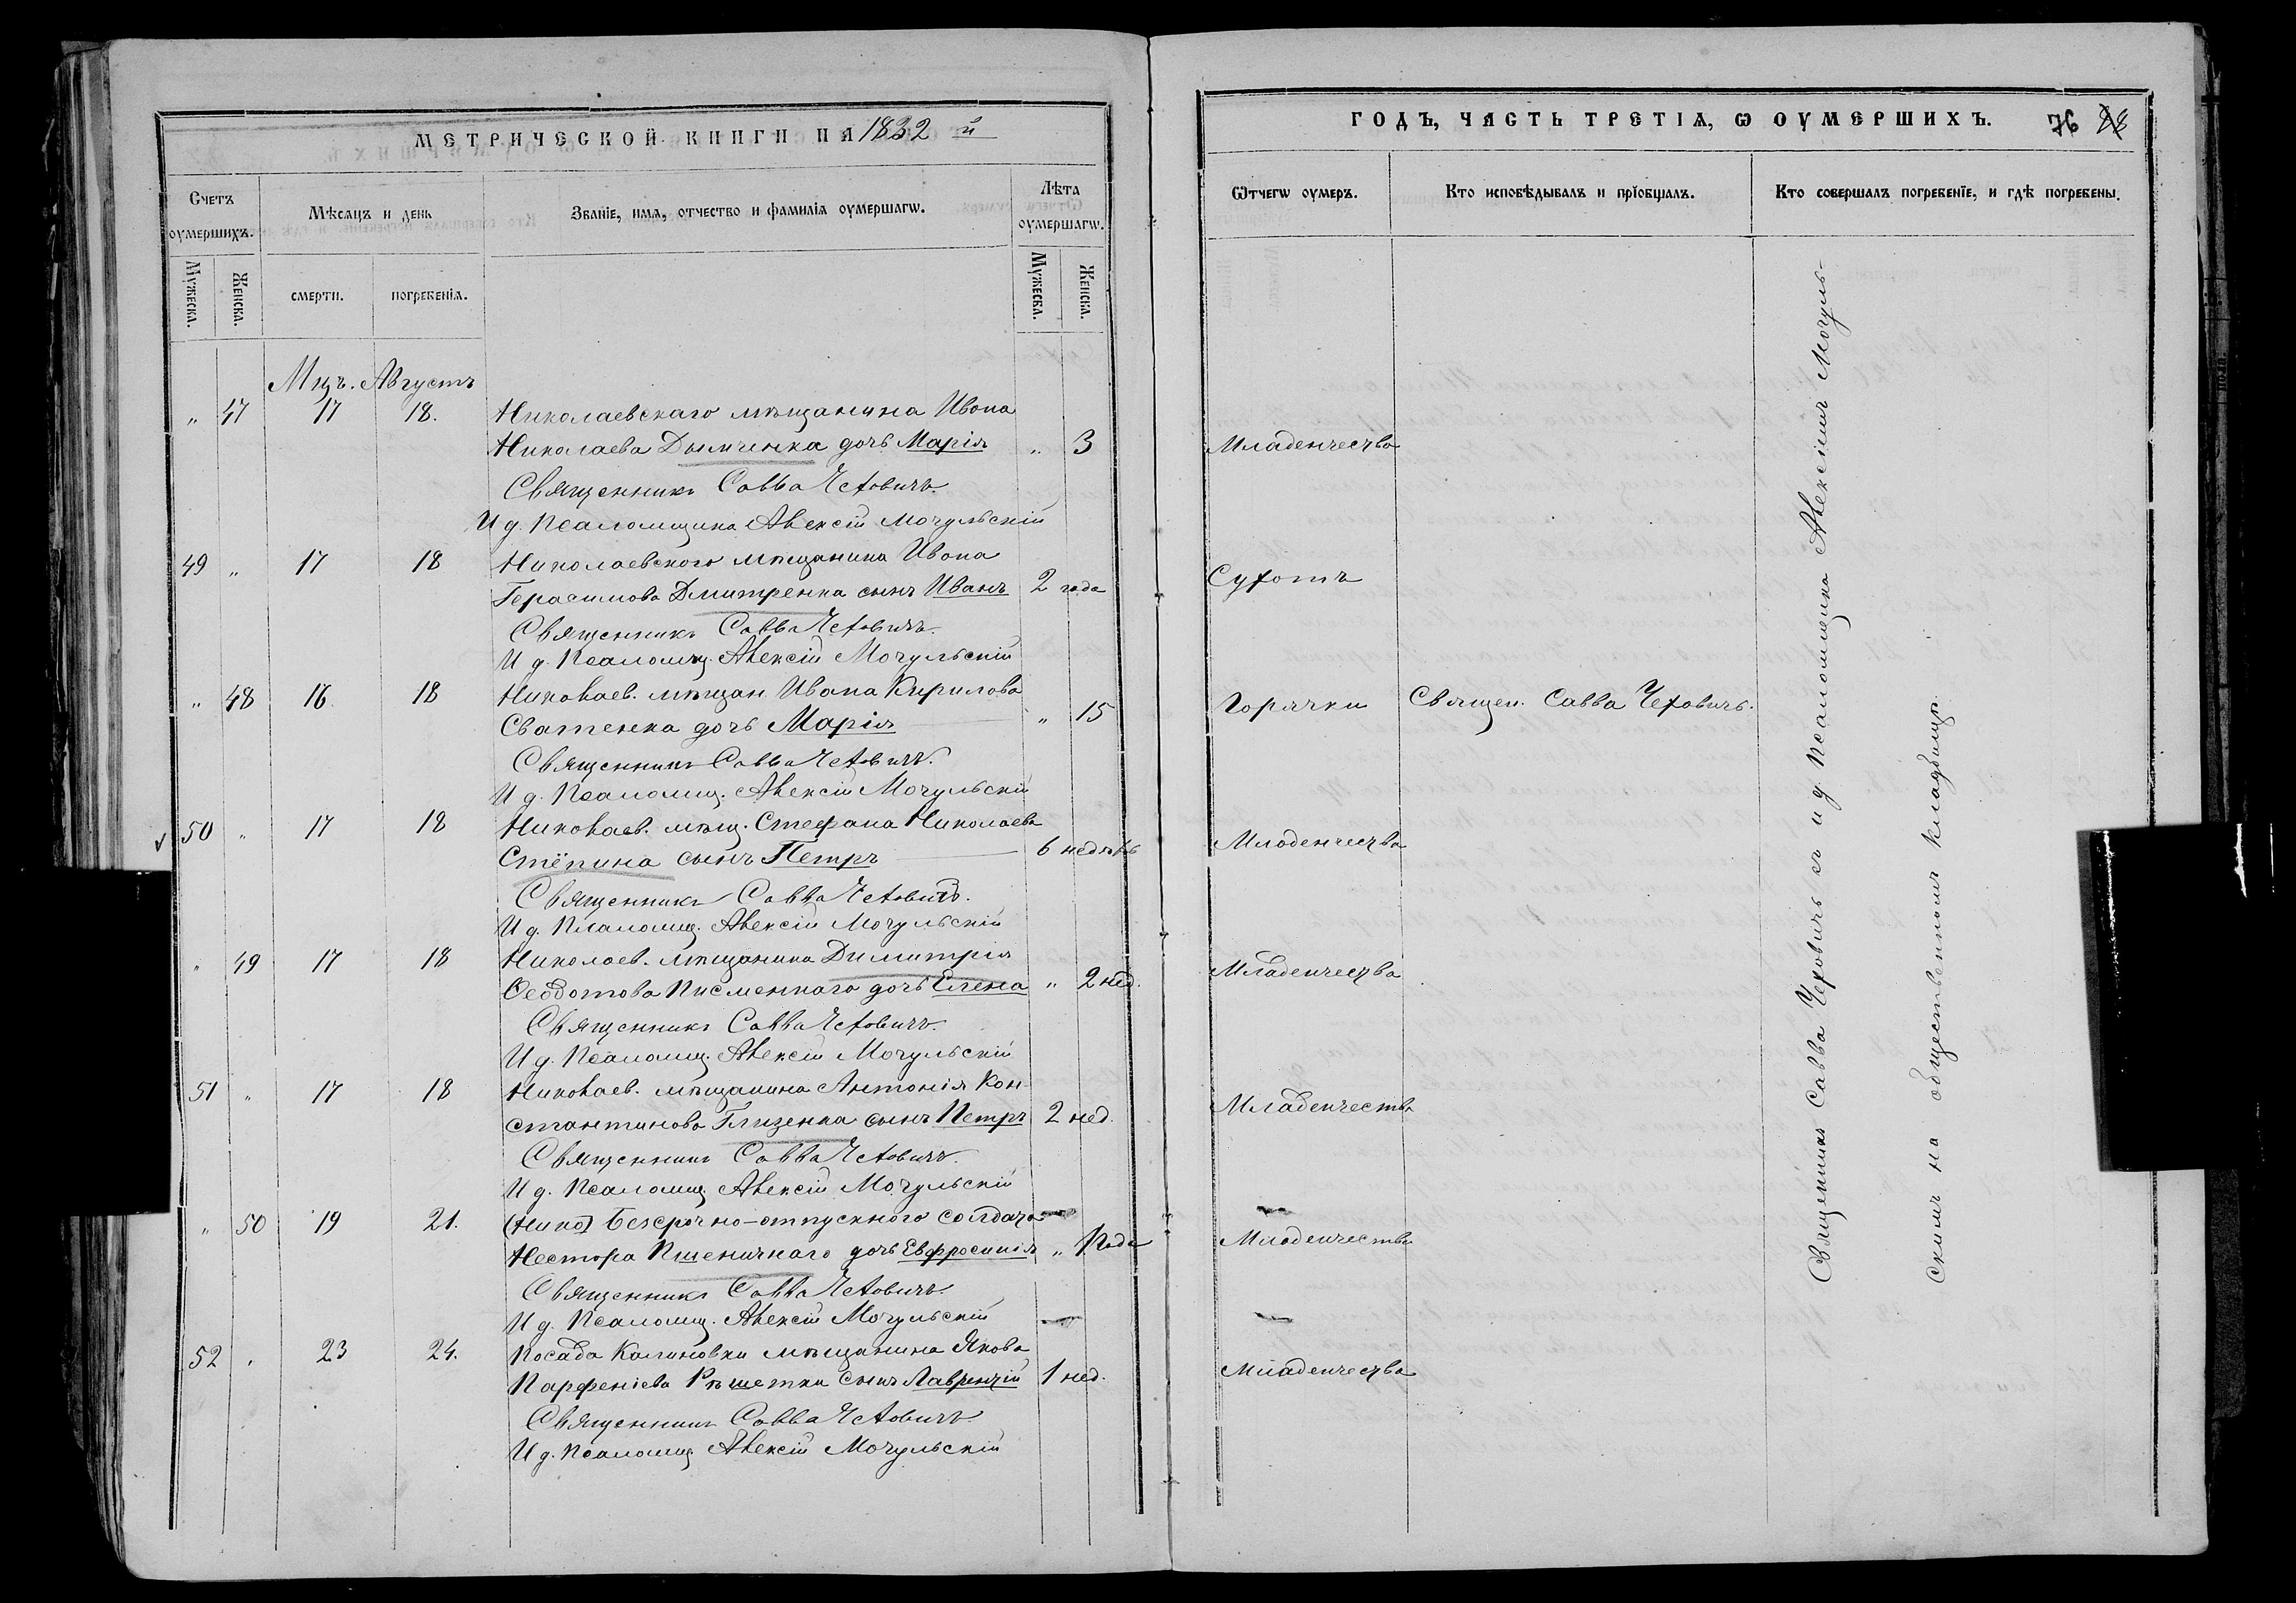 МЕТРИЧЕСКОЙ КНИГИ НА 1832 й
Счетъ оумершихъ.
Мѣсяцъ и день
Званіе, имя, отчество и фамилія оумершагѡ.
Лѣта оумершагѡ.
Мужеска. Женска. смерти. погребенія. Мужеска. Женска.
Мцъ. Августъ
„ 47 17 18. Николаевскаго мѣщанина Ивана
Николаева Дымченка дочь Марія „ 3
Священникъ Савва Чеховичъ.
И д. Псаломщика Алексій Мочульскій
49 „ 17 18 Николаевского мѣщанина Ивана
Герасимова Дмитренка сынъ Иванъ 2 года
Священникъ Савва Чехович.
И д. Псаломщ. Алексій Мочульскій
„ 48 16 18 Николаев. мѣщан. Ивана Кирилова
Сватенка дочь Марія „ 15
Священникъ Савва Чеховичъ.
И д. Псаломщ. Алексій Мочульскій
50 „ 17 18 Николаев. мѣщ. Стефана Николаева
Стёпина сынъ Петръ 6 недѣль
Священникъ Савва Чеховичъ.
И д. Псаломщ. Алексій Мочульскій
„ 49 17 18 Николаев. мѣщанина Димитрія
Ѳеодотова Писменнаго дочь Елена „ 2 нед.
Священникъ Савва Чеховичъ.
И д. Псаломщ. Алексій Мочульскій
51 „ 17 18 Николаев. мѣщанина Антонія Кон-
стантинова Глизенка сынъ Петръ 2 нед.
Священникъ Савва Чеховичъ.
И д. Псаломщ. Алексій Мочульскій
„ 50 19 21. (Нико) безсрочно-отпускного солдата
Нестора Пшеничнаго дочь Евфросинія „ 1 года
Священникъ Савва Чеховичъ.
И д. Псаломщ. Алексій Мочульскій
52 „ 23 24. Посада Калиновки мѣщанина Якова
Парфеніева Рѣшетки сынъ Лаврентій 1 нед.
Священникъ Савва Чеховичъ.
И д. Псаломщ. Алексій Мочульскій
ГОДЪ, ЧАСТЬ ТРЕТІЯ, Ѡ ОУМЕРШИХЪ. 76 88
Ѿчегѡ оумеръ.
Кто исповѣдывалъ и прїобщалъ.
Кто совершалъ погребенїе, и гдѣ погребены.
Младенчества
Сухотъ
Горячки Священ. Савва Чеховичъ.
Младенчества
Младенчества
Младенчества
Младенчества
Младенчества
Священникъ Савва Чеховичъ съ и д псаломщика Алексіемъ Мочуль-
скимъ на общественномъ кладбищѣ